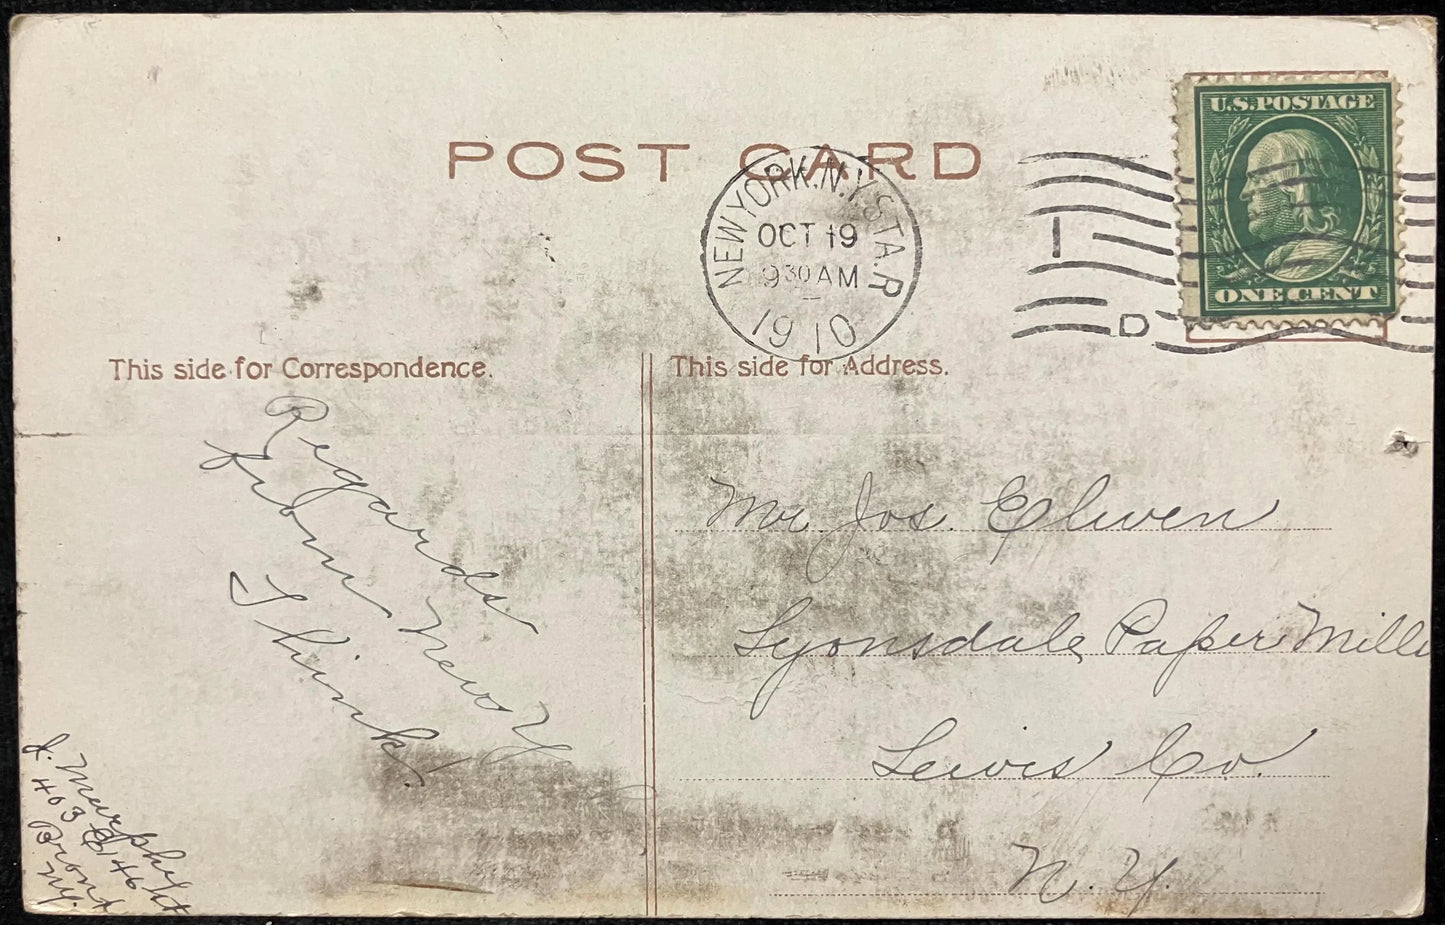 POST CARD
NEW YORK, N.Y. STA. R
OCT 19
9 30 AM
1910
1
D
U.S. POSTAGE
ONE CENT
This side for Correspondence.
This side for Address.
Regards
from New Y
Think
J. Murphy
403 E 146 St
Bronx
NY.
Mr. Jos. Elwen
Lyonsdale Paper Mills
Lewis Co.
N. Y.